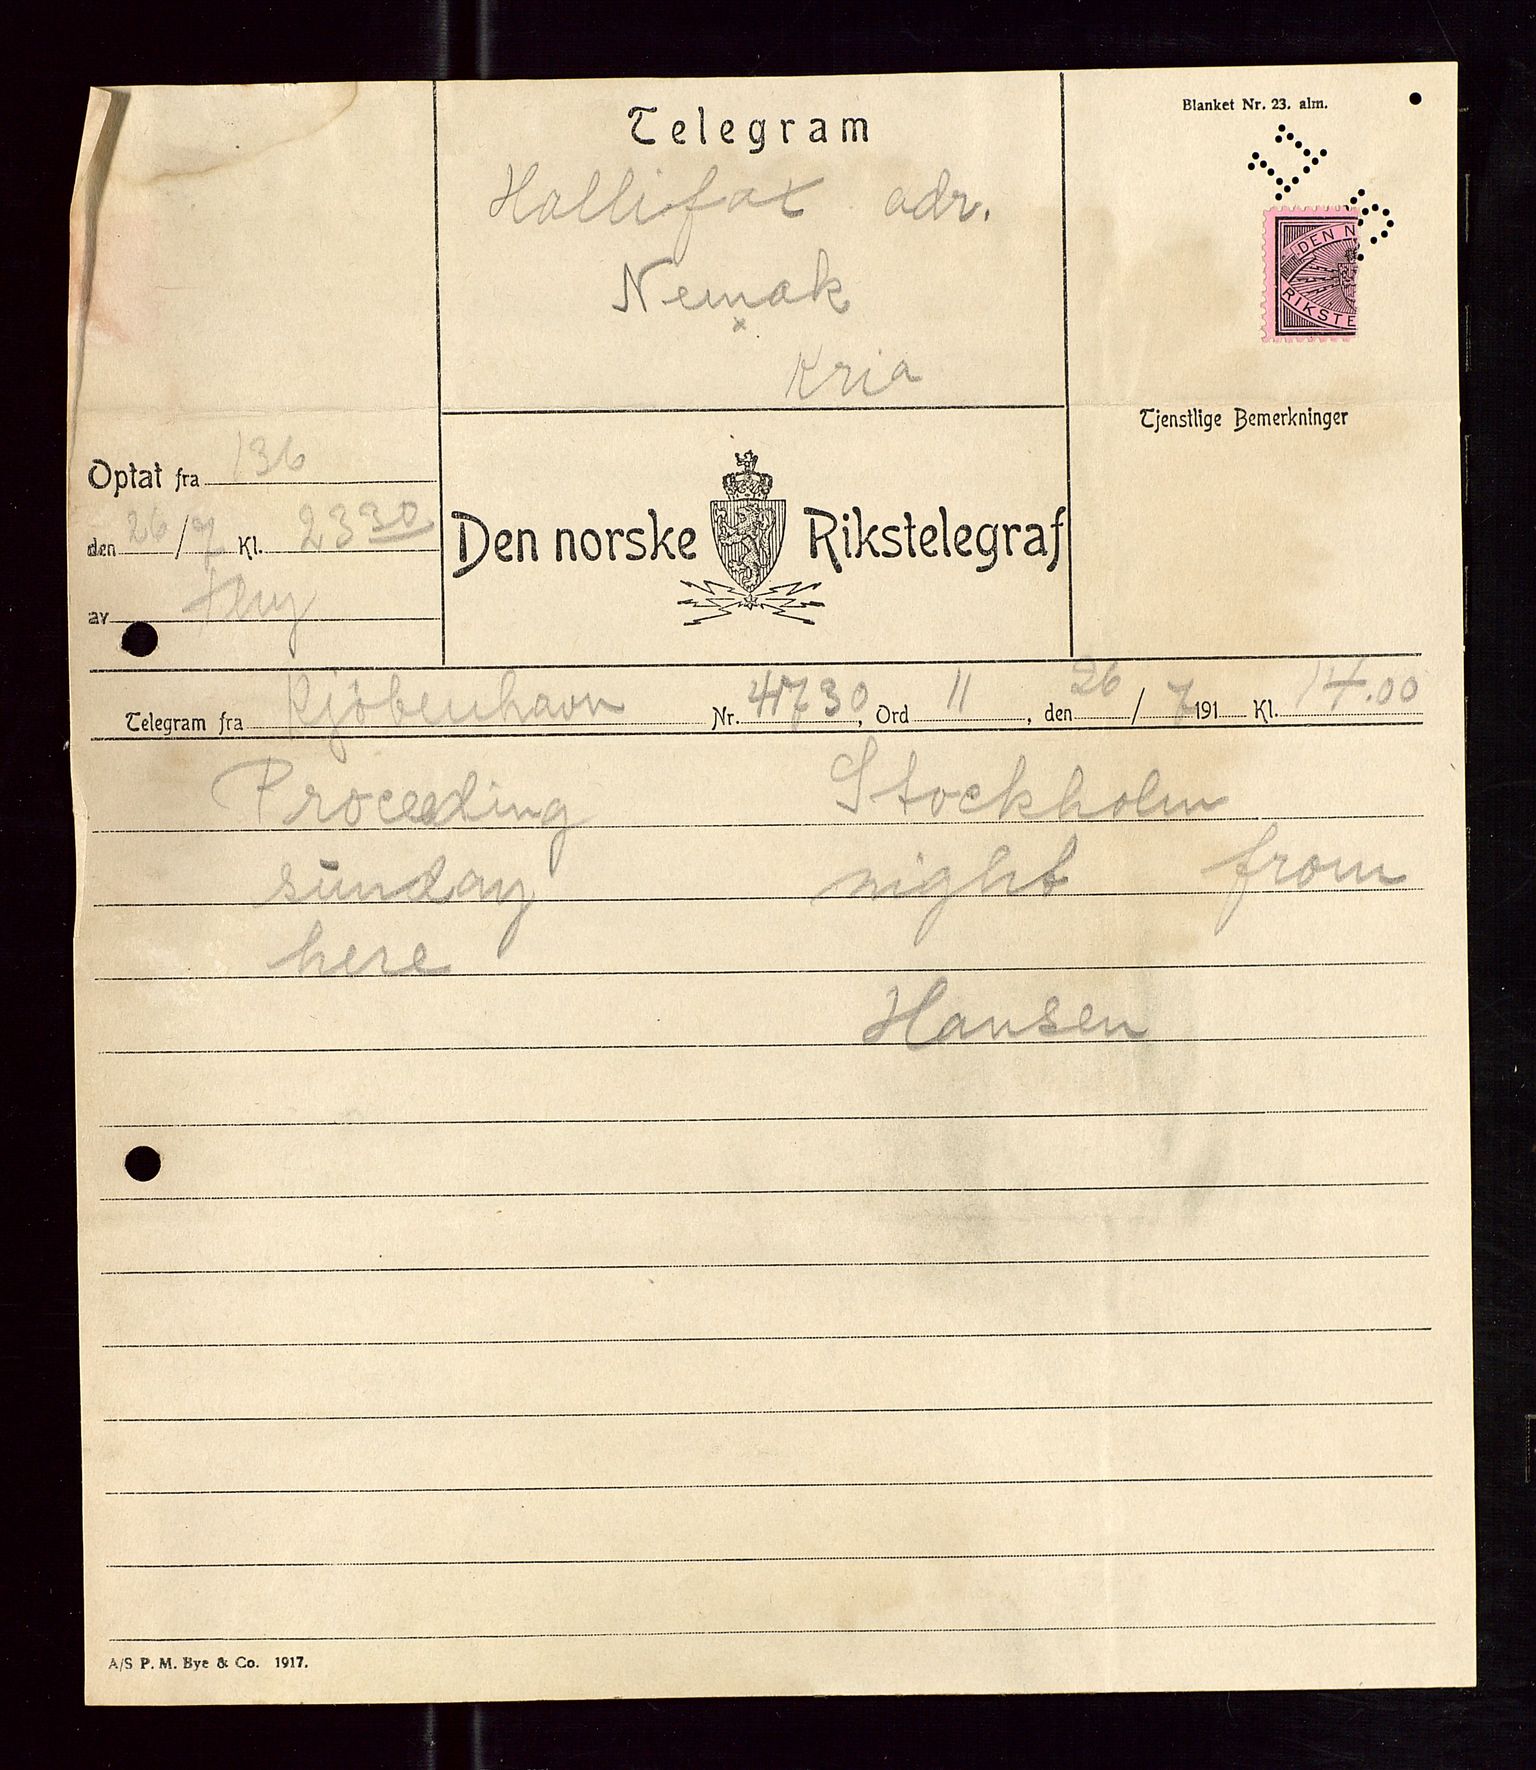 Blanket Nr. 23. alm.
Telegram
Hallifax adr.
Nemak
x
Kria
DEN N
RIKSTE
Tjenstlige Bemerkninger
Optat fra 136
den 26/7 Kl. 23 30
av
Den norske Rikstelegraf
Telegram fra Kjöbenhavn Nr. 41730, Ord 11, den 26/7 191 Kl. 14.00
Proceeding Stockholm
sunday night from
here
Hansen
A/S P. M. Bye & Co. 1917.